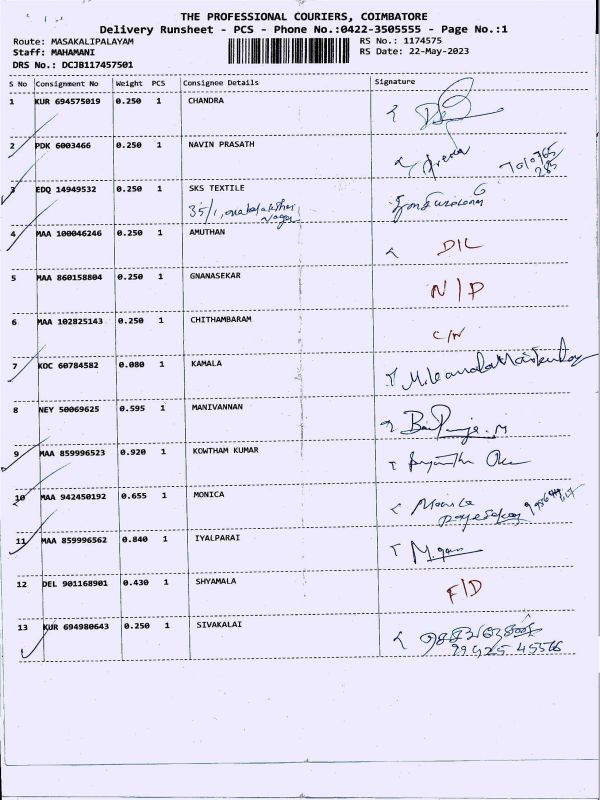 THE PROFESSIONAL COURIERS, COIMBATORE
Delivery Runsheet - PCS - Phone No.:0422-3505555 - Page No.:1
Route: MASAKALIPALAYAM RS No.: 1174575
Staff: MAHAMANI RS Date: 22-May-2023
DRS No.: DCJB117457501
S No Consignment No Weight PCS Consignee Details Signature
1 KUR 694575019 0.250 1 CHANDRA
2 PDK 6003466 0.250 1 NAVIN PRASATH
3 EDQ 14949532 0.250 1 SKS TEXTILE
35/1,
Nagar
4 MAA 100046246 0.250 1 AMUTHAN D/L
5 MAA 860158804 0.250 1 GNANASEKAR N/P
6 MAA 102825143 0.250 1 CHITHAMBARAM C/N
7 KOC 60784582 0.080 1 KAMALA
8 NEY 50069625 0.595 1 MANIVANNAN
9 MAA 859996523 0.920 1 KOWTHAM KUMAR
10 MAA 942450192 0.655 1 MONICA
11 MAA 859996562 0.840 1 IYALPARAI
12 DEL 901168901 0.430 1 SHYAMALA F/D
13 KUR 694980643 0.250 1 SIVAKALAI